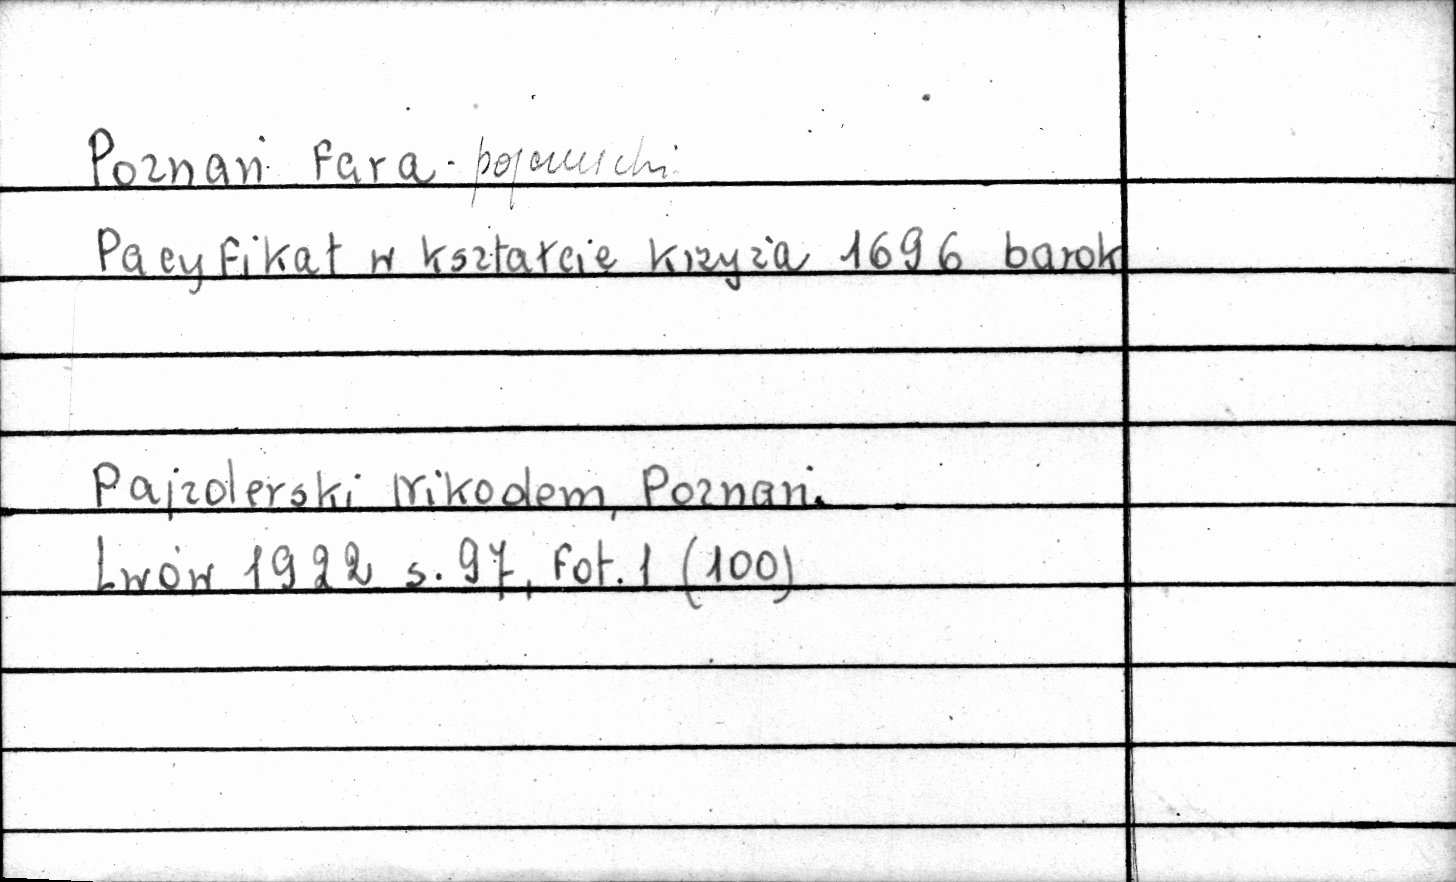 Poznań Fara - pojezuicki
Pacyfikał w kształcie krzyża 1696 barok
Pajzderski Nikodem, Poznań.
Lwów 1922 s. 97, fot. 1 (100)